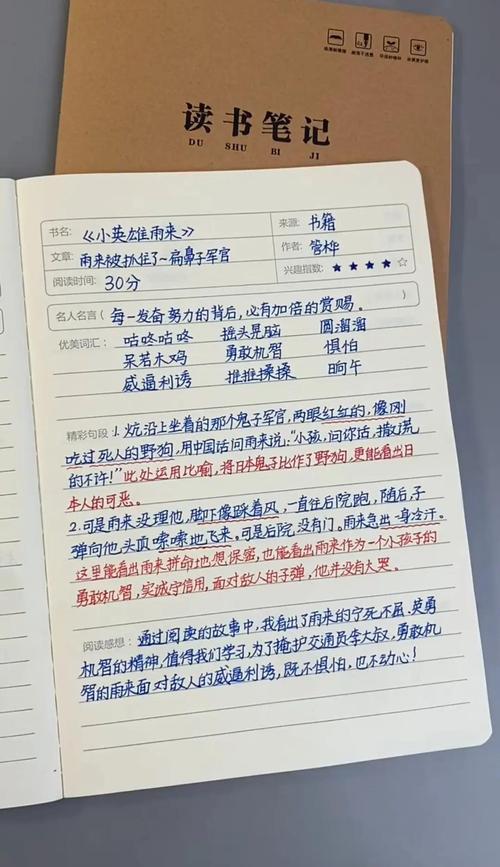 读书笔记
DU SHU BI JI
书名: 《小英雄雨来》
来源: 书籍
文章: 雨来被抓住了~扁鼻子军官
作者: 管桦
阅读时间: 30分
兴趣指数: ★★★★☆
名人名言 ( 每一发奋努力的背后,必有加倍的赏赐。 )
优美词汇: 咕咚咕咚 摇头晃脑 圆溜溜
呆若木鸡 勇敢机智 惧怕
威逼利诱 推推搡搡 晌午
精彩句段 1.炕沿上坐着的那个鬼子军官,两眼红红的,像刚
吃过死人的野狗,用中国话问雨来说:“小孩,问你话,撒谎
的不许!”此处运用比喻,将日本鬼子比作了野狗,更能看出日
本人的可恶。
2.可是雨来没理他,脚下像踩着风,一直往后院跑,随后,子
弹向他头顶嗖嗖地飞来。可是后院没有门,雨来急出一身冷汗。
这里能看出雨来拼命地想保密,也能看出雨来作为一个小孩子的
勇敢机智,实诚守信用,面对敌人的子弹,他并没有大哭。
阅读感想: 通过阅读的故事中,我看出了雨来的宁死不屈、英勇
机智的精神,值得我们学习,为了掩护交通员李大叔,勇敢机
智的雨来面对敌人的威逼利诱,既不惧怕,也不动心!